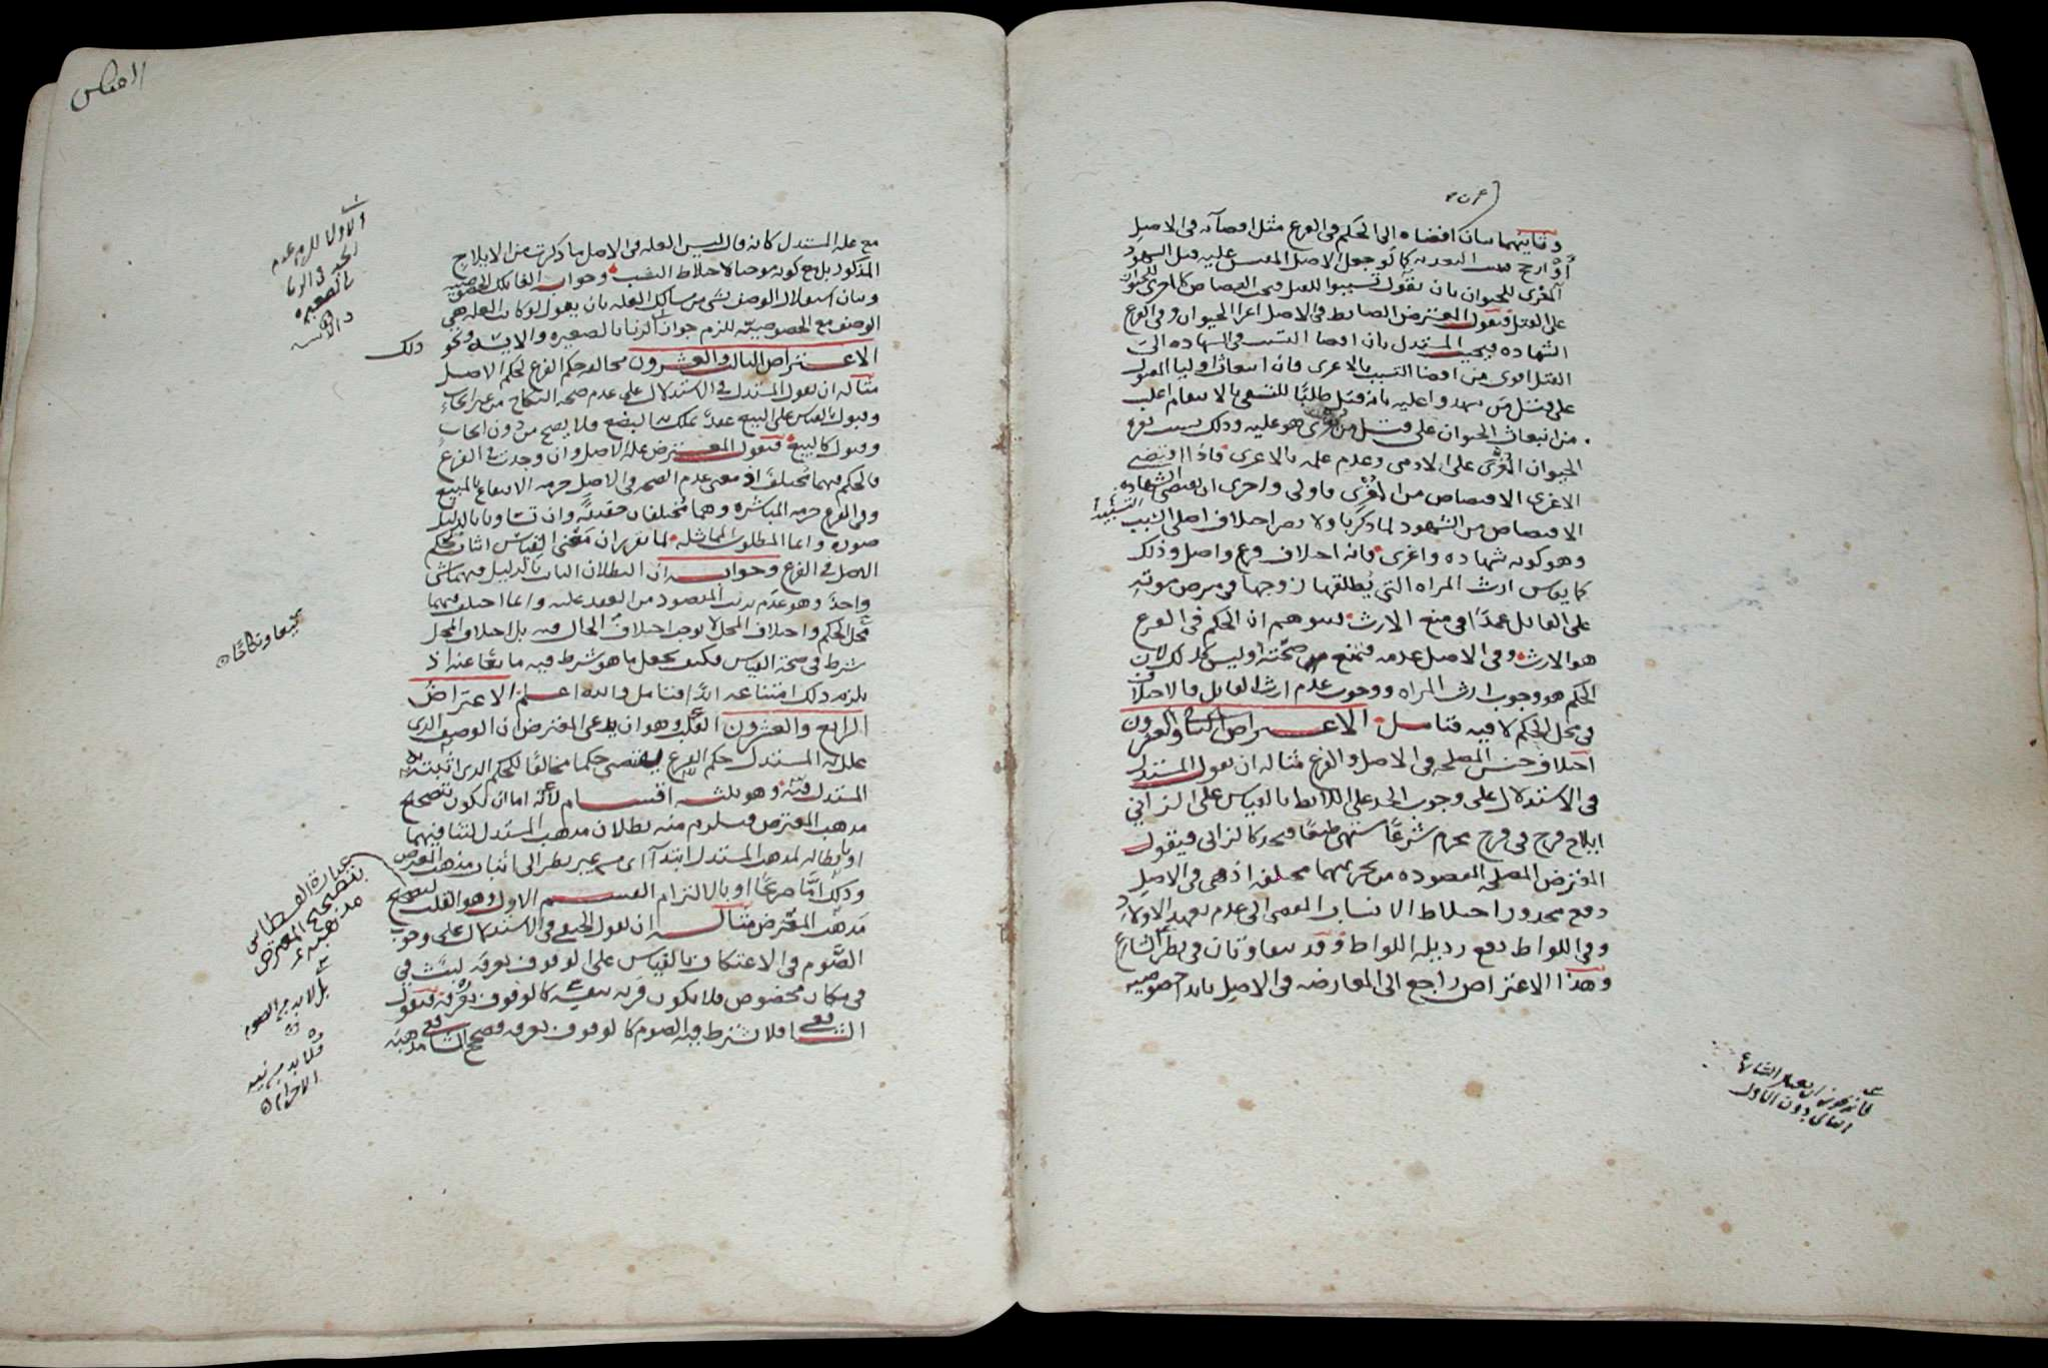 وثانيهما بيان افضاه الى الحكم في الفرع مثل افضآئه في الاصل
او ارجح كما لو جعل الاصل المقيس عليه قتل الشهود
المغرى للحيوان بان يقول تسببوا للقتل فيجب القصاص كالمغرى للحيوان
على القتل فيقول المعترض الضابط في الاصل اغرا الحيوان وفي الفرع
الشهاده فيجيب المستدل بان افضا التسبب في الشهاده الى
القتل اقوى من افضا التسبب بالاغرى فان انبعاث اوليا المقتول
على قتل من شهدوا عليه بانه قتل طلبًا للتشفي بالانتقام اغلب
من انبعاث الحيوان على قتل من يُغرى هو عليه وذلك بسبب نفره
الحيوان المُغرَى على الادمي وعدم علمه بالاغرى فاذا اقتضى
الاغرى الاقتصاص من المُغْرِي فاولى واحرى ان تقتضي الشهاده
الاقتصاص من الشهود لما ذكرنا ولا يضر اختلاف اصلي التسبب
وهو كونه شهاده واغرى فانه اختلاف فرع واصل وذلك
كما يقاس ارث المراه التي يُطلقها زوجها في مرض موته
على القاتل عمدًا في منع الارث فيتوهم ان الحكم في الفرع
هو الارث وفي الاصل عدمه فتمنع صحّته وليس كذلك لان
الحكم هو وجوب ارث المراه ووجوب عدم ارث القاتل فالاختلاف
في محل الحكم لا فيه فتامل الاعتراض الثاني والعشرون
اختلاف جنس المصلحه في الاصل والفرع مثاله ان يقول المستدل
في الاستدلال على وجوب الحد على اللائط بالقياس على الزاني
ايلاج فرج في فرج محرم شرعًا مشتهى طبعًا فيحد كالزاني فيقول
المعترض المصلحه المقصوده من تحريمهما مختلفه اذ هي في الاصل
دفع محذور اختلاط الانساب المفضي الى عدم تعهد الاولاد
وفي اللواط دفع رذيله اللواط وقد يتفاوتان في نظر الشارع
وهذا الاعتراض راجع الى المعارضه في الاصل بابدا خصوصيه
فانه يجوز ان يعتبر الشارع
الثاني دون الاول
مع عله المستدل كانه قال ليس العله في الاصل ما ذكرت من الايلاج
المذكور بل مع كونه موجبا لاختلاط النسب وجوابه الغا تلك الخصوصيه
وبيان استقلال الوصف بشي من مسالك العله بان يقول لو كانت العله هي
الوصف مع الخصوصيّه للزم جواز الزنا بالصغيره والايسه ونحو
ذلك
الاعتراض الثالث والعشرون مخالفه حكم الفرع لحكم الاصل
مثاله ان يقول المستدل في الاستدلال على عدم صحه النكاح من غير ايجاب
وقبول بالقياس على البيع عقدٌ تملك به البضع فلا يصح من دون ايجاب
وقبول كالبيع فيقول المعترض عله الاصل وان وجدت في الفرع
فالحكم فيهما مُختلف اذ معنى عدم الصحه في الاصل حرمه الانتفاع بالمبيع
وفي الفرع حرمه المباشره وهما مُختلفان حقيقةً وان تساويا بالدليل
صوره وانما المطلوب المماثله لما تقرر ان معنى القياس اثبات حكم
الاصل في الفرع وجوابه ان البطلان الثابت بالدليل فيهما شي
واحدٌ وهو عدم ترتب المقصود من العقد عليه وانما اختلف فيهما
محل الحكم واختلاف المحل لا يوجب اختلاف الحال فيه بل اختلاف المحل
شرط في صحة القياس فكيف يجعل ما هو شرط فيه مانعًا عنه اذ
يلزم ذلك امتناعه ابدًا فتامل والله اعلم الاعتراض
الرابع والعشرون القَلب وهو ان يدعى المعترض ان الوصف الذي
علل به المستدل حكم الفرع يقتضي حكما مخالفًا للحكم الذي اثبته
المستدل فيه وهو ثلثه اقسام لانه اما ان يكون بتصحيح
مذهب المعترض فيلزم منه بطلان مذهب المستدل لتنافيهما
او بابطاله لمذهب المستدل ابتدآ اى من غير نظر الى اثبات مذهب المعترض
وذلك امّا صريحًا او بالالتزام القسم الاول وهو القلب لتصحيح
مذهب المعترض مثاله ان يقول الحنفي في الاستدلال على وجوب
الصّوم في الاعتكاف بالقياس على الوقوف بعرفه لبث في
في مكان مخصوص فلا يكون قربه بنفسه كالوقوف بعرفه فيقول
الشافعي فلا يشترط فيه الصوم كالوقوف بعرفه فصحح الشافعي مذهبه
والاول للزم عدم
الحد في الزنا
بالصغيره
والايسه
بيعًا ونكاحًا
عبارة القسطاس
بتصحيح المعترض
مذهبه
بل لا بد من الصوم
فلا بد من نيه
الاحرام